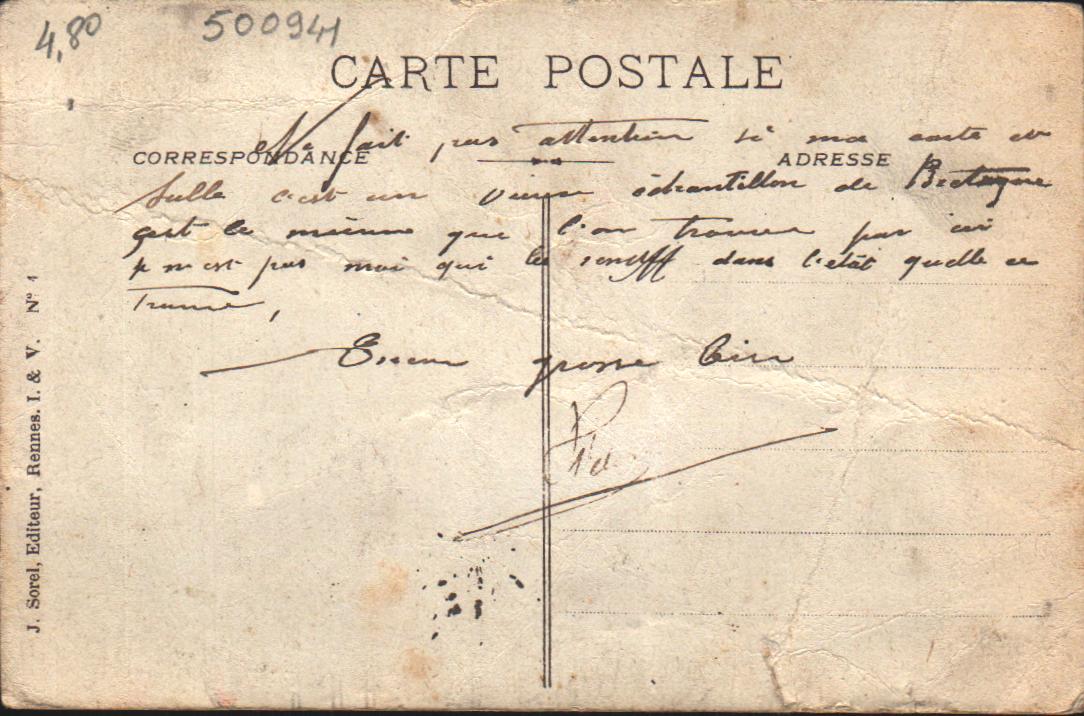 4,80
500941
CARTE POSTALE
Ne fait pas attention si ma carte est
CORRESPONDANCE
ADRESSE
salle c'est un vieux échantillon de Bretagne
que l'on trouve par ici
n'est pas moi qui dans l'état quelle ce
trouve,
Encore grosse bise
J. Sorel, Editeur, Rennes. I. & V. N° 1